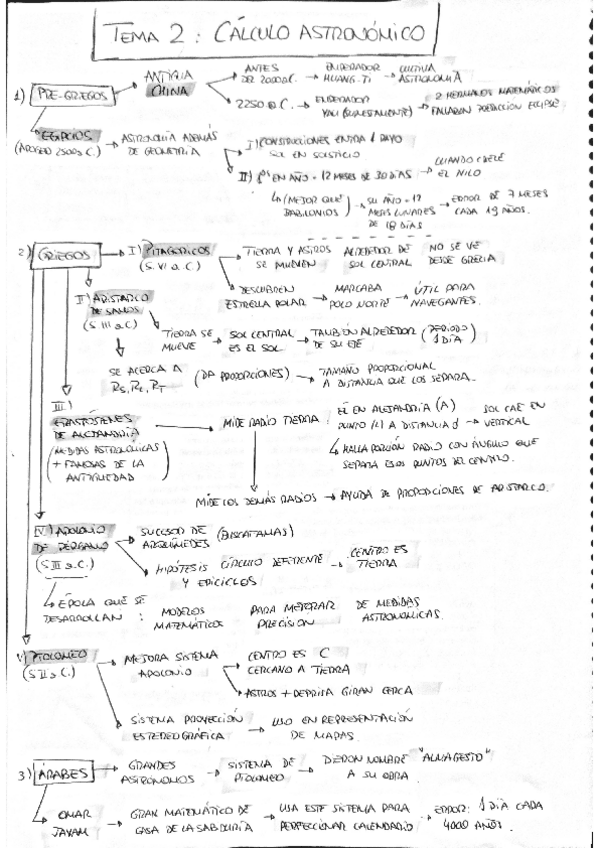 TEMA 2: CÁLCULO ASTRONÓMICO
1) PRE-GRIEGOS → ANTIGUA CHINA → ANTES DEL 2000 a.C. → EMPERADOR HUANG-TI → CULTIVA ASTRONOMÍA
2250 a.C. → EMPERADOR YAO → 2 HERMANOS MATEMÁTICOS FALLARON PREDICCIÓN ECLIPSE
EGIPCIOS (APOGEO 2500 a.C.) → ASTRONOMÍA ADEMÁS DE GEOMETRÍA
I) CONSTRUCCIONES ENTRA 1 RAYO SOL EN SOLSTICIO
II) EN AÑO = 12 MESES DE 30 DÍAS → CUANDO CRECE EL NILO
(MEJOR QUE BABILONIOS) → SU AÑO = 12 MESES LUNARES DE DÍAS → ERROR DE 7 MESES CADA 19 AÑOS.
2) GRIEGOS → I) PITAGÓRICOS (S. VI a.C.)
TIERRA Y ASTROS SE MUEVEN ALREDEDOR DE SOL CENTRAL NO SE VE DESDE GRECIA
DESCUBREN ESTRELLA POLAR → MARCABA POLO NORTE → ÚTIL PARA NAVEGANTES.
II) ARISTARCO DE SAMOS (S. III a.C.)
TIERRA SE MUEVE → SOL CENTRAL ES EL SOL → TAMBIÉN ALREDEDOR DE SU EJE (PERIODO 1 DÍA)
SE ACERCA A RS, RL, RT (DA PROPORCIONES) → TAMAÑO PROPORCIONAL A DISTANCIA QUE LOS SEPARA.
III) ERATÓSTENES DE ALEJANDRÍA (MEDIDAS ASTRONÓMICAS + FAMOSAS DE LA ANTIGÜEDAD)
MIDE RADIO TIERRA: ÉL EN ALEJANDRÍA (A) PUNTO A DISTANCIA d → SOL CAE EN VERTICAL
HALLA PORCIÓN RADIO CON ÁNGULO QUE SEPARA ESOS PUNTOS DEL CENTRO.
MIDE LOS DEMÁS RADIOS → AYUDA DE PROPORCIONES DE ARISTARCO.
IV) APOLONIO DE PÉRGAMO (S III a.C.)
SUCESOR DE ARQUÍMEDES
HIPÓTESIS CÍRCULO DEFERENTE Y EPICICLOS → CENTRO ES TIERRA
ÉPOCA QUE SE DESARROLLAN: MODELOS MATEMÁTICOS PARA MEJORAR PRECISIÓN DE MEDIDAS ASTRONÓMICAS.
V) PTOLOMEO (S II a.C.)
MEJORA SISTEMA APOLONIO → CENTRO ES C CERCANO A TIERRA
ASTROS + DEPRISA GIRAN CERCA
SISTEMA PROYECCIÓN ESTEREOGRÁFICA → USO EN REPRESENTACIÓN DE MAPAS.
3) ÁRABES → GRANDES ASTRÓNOMOS → SISTEMA DE PTOLOMEO → DIERON NOMBRE "ALMAGESTO" A SU OBRA.
OMAR JAYAM → GRAN MATEMÁTICO DE CASA DE LA SABIDURÍA → USA ESTE SISTEMA PARA PERFECCIONAR CALENDARIO → ERROR: 1 DÍA CADA 4000 AÑOS.